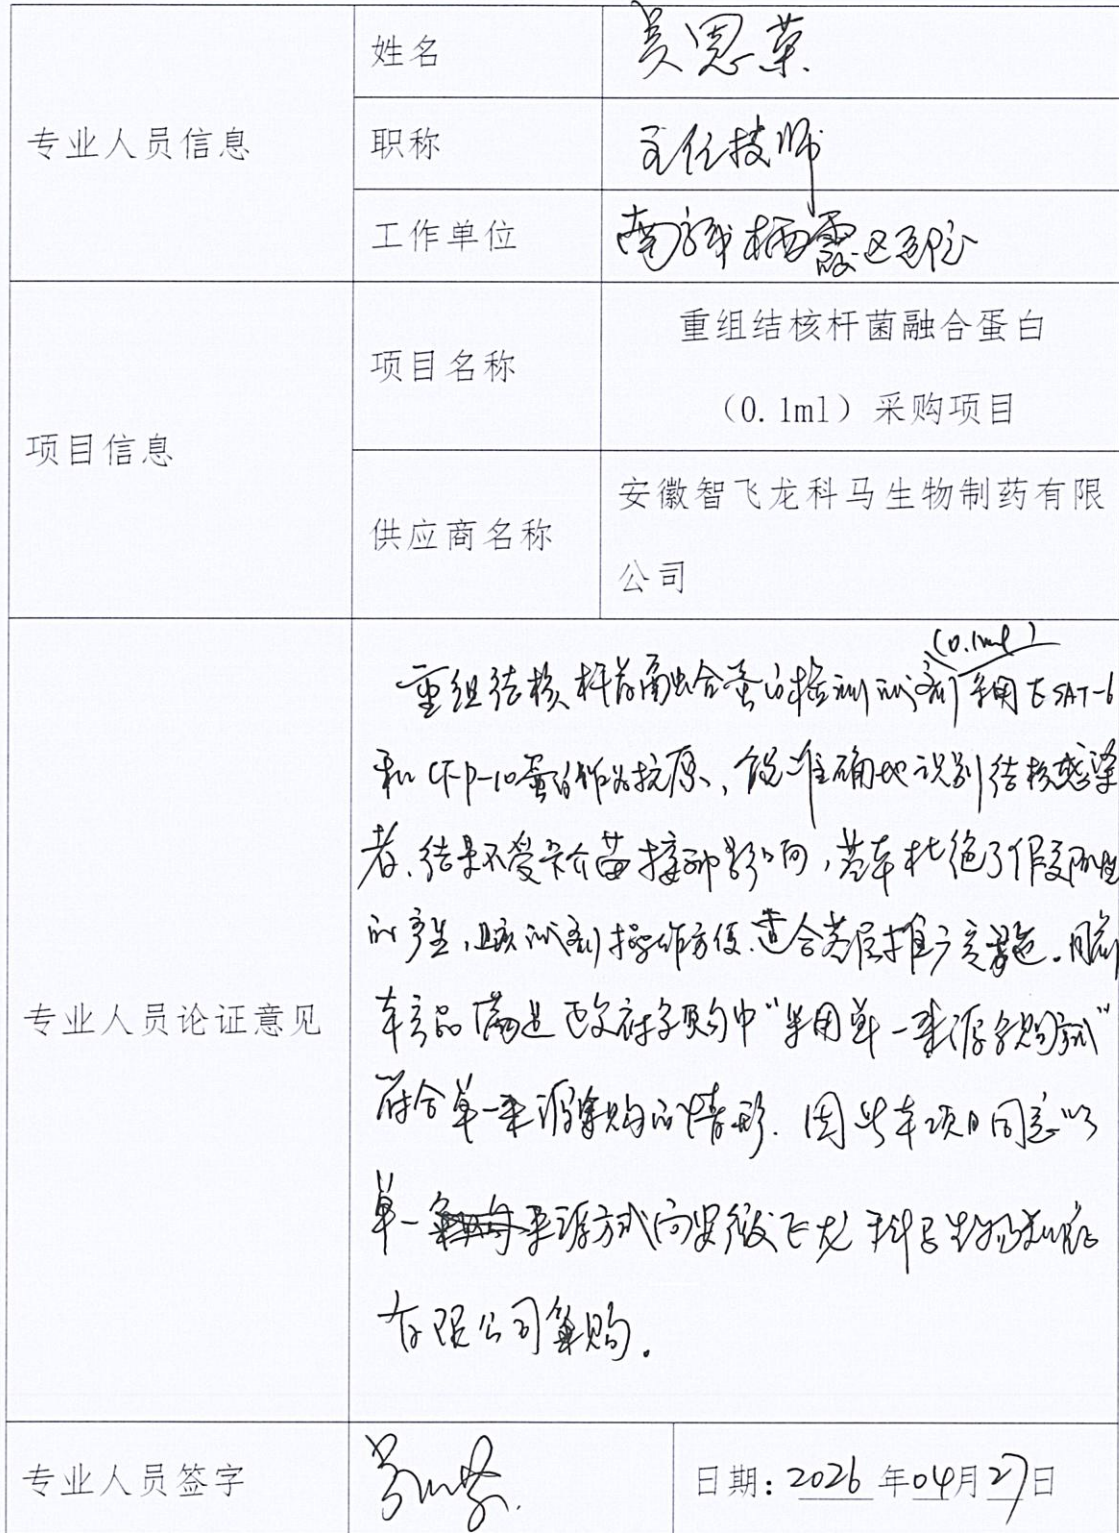 专业人员信息
姓名
吴恩荣
职称
主任技师
工作单位
南京市栖霞区医院
项目信息
项目名称
重组结核杆菌融合蛋白
（0.1ml）采购项目
供应商名称
安徽智飞龙科马生物制药有限
公司
专业人员论证意见
(0.1ml)
重组结核杆菌融合蛋白检测试剂采用ESAT-6
和CFP-10蛋白作为抗原、能准确地识别结核感染
者、结果不受卡介苗接种影响，基本杜绝了假阳性
的产生，且该试剂操作方便、适合基层推广实施。
本产品满足政府采购中“采用单一来源采购方式”
符合单一来源采购的情形. 因此本项目同意以
单一来源方式向安徽飞龙科马生物制药
有限公司采购.
专业人员签字
日期: 2026年04月27日